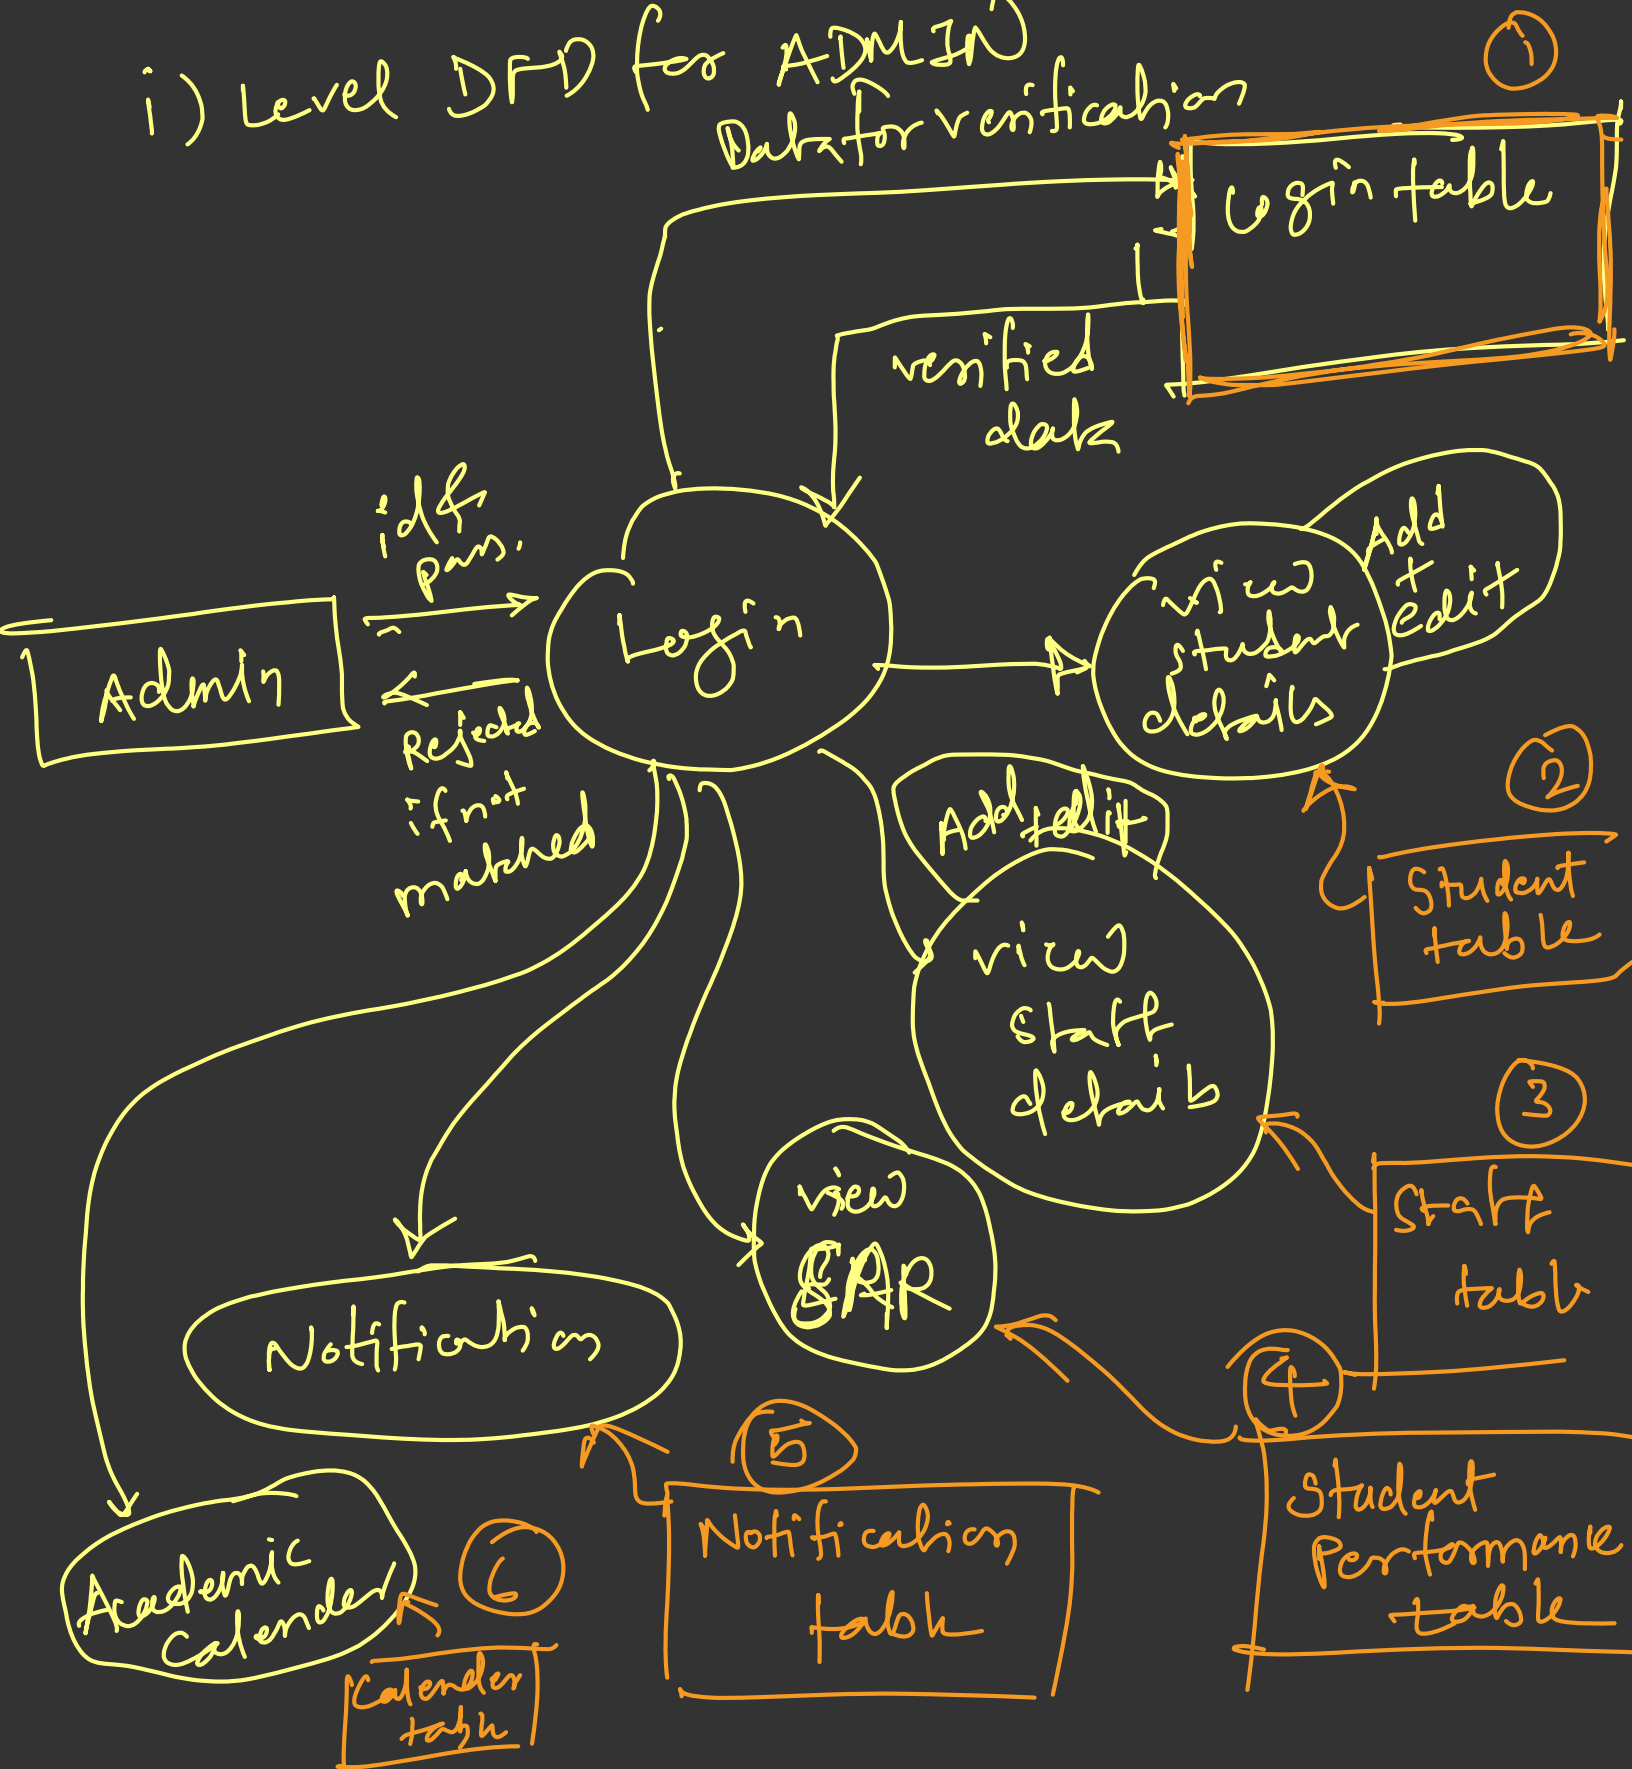 i) Level DFD for ADMIN
Data for verification
1
Login table
verified
data
id &
pass.
Login
Admin
Rejected
if not
matched
view
student
details
Add
+
edit
2
Student
table
Add
+edit
view
staff
details
3
Staff
table
view
SAR
4
Student
Performance
table
Notification
5
Notification
table
Academic
Calender
6
Calender
table